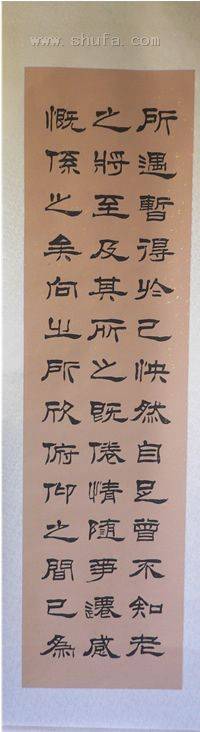 www.shufa.com
所遇暫得於己怏然自足曾不知老
之將至及其所之既倦情隨事遷感
慨係之矣向之所欣俯仰之間已為